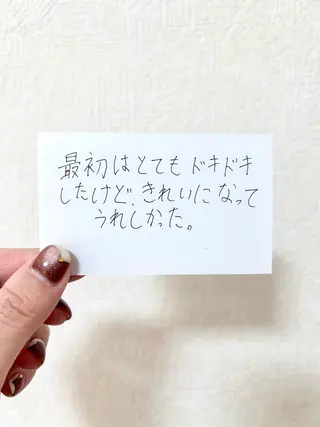 最初はとてもドキドキ
したけど、きれいになって
うれしかった。